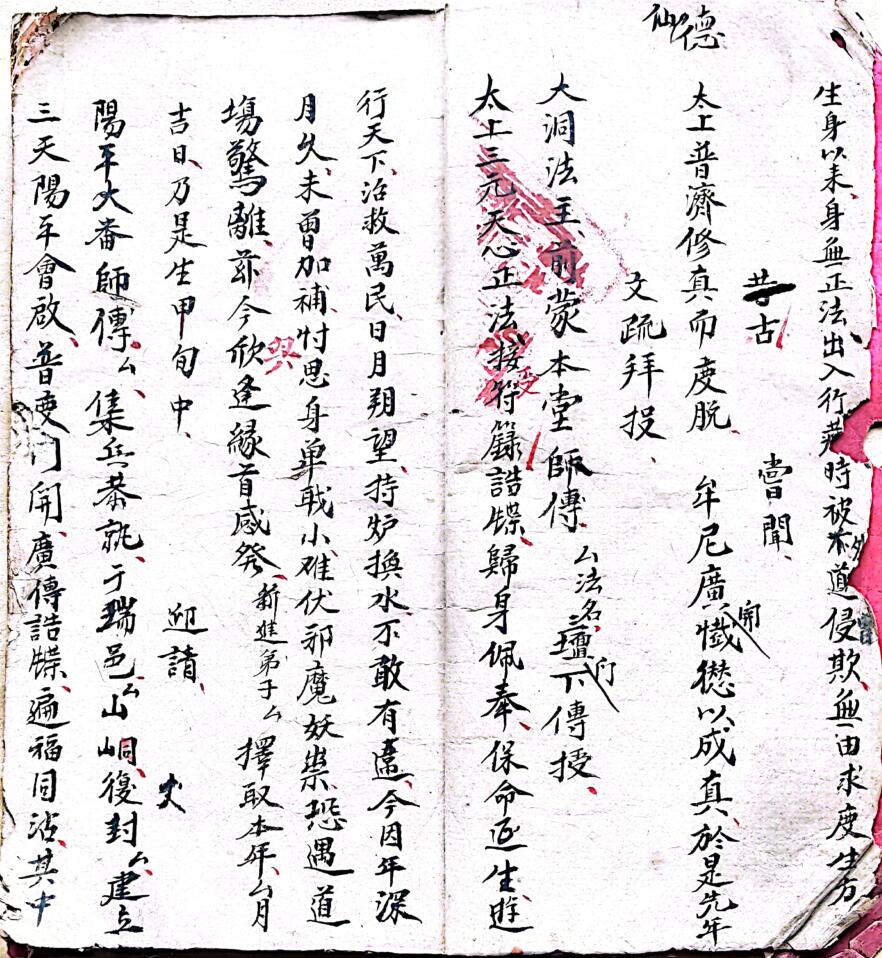 仙德
生身以来身無正法出入行藏時被外道侵欺無由求度生方
昔古 嘗聞
太上普濟修真而度脱 牟尼廣開懺以成真於是先年
文疏拜投
大洞法主前蒙本堂師傳厶法名三壇門下傳授
太上三元天心正法接授符籙誥牒歸身佩奉保命延生遊
行天下治救萬民日月朔望持炉換水不敢有違今因年深
月久未曾加補忖思身单戟小难伏邪魔妖祟恐遇道
塲驚離兹今欣逢緣首感發新進弟子厶擇取本年厶月
吉日乃是生甲旬中 迎請
陽平大番師傳厶集兵恭就于瑞邑厶山峒復封厶建立
三天陽平會啟普度門開廣傳誥牒遍福同沾其中